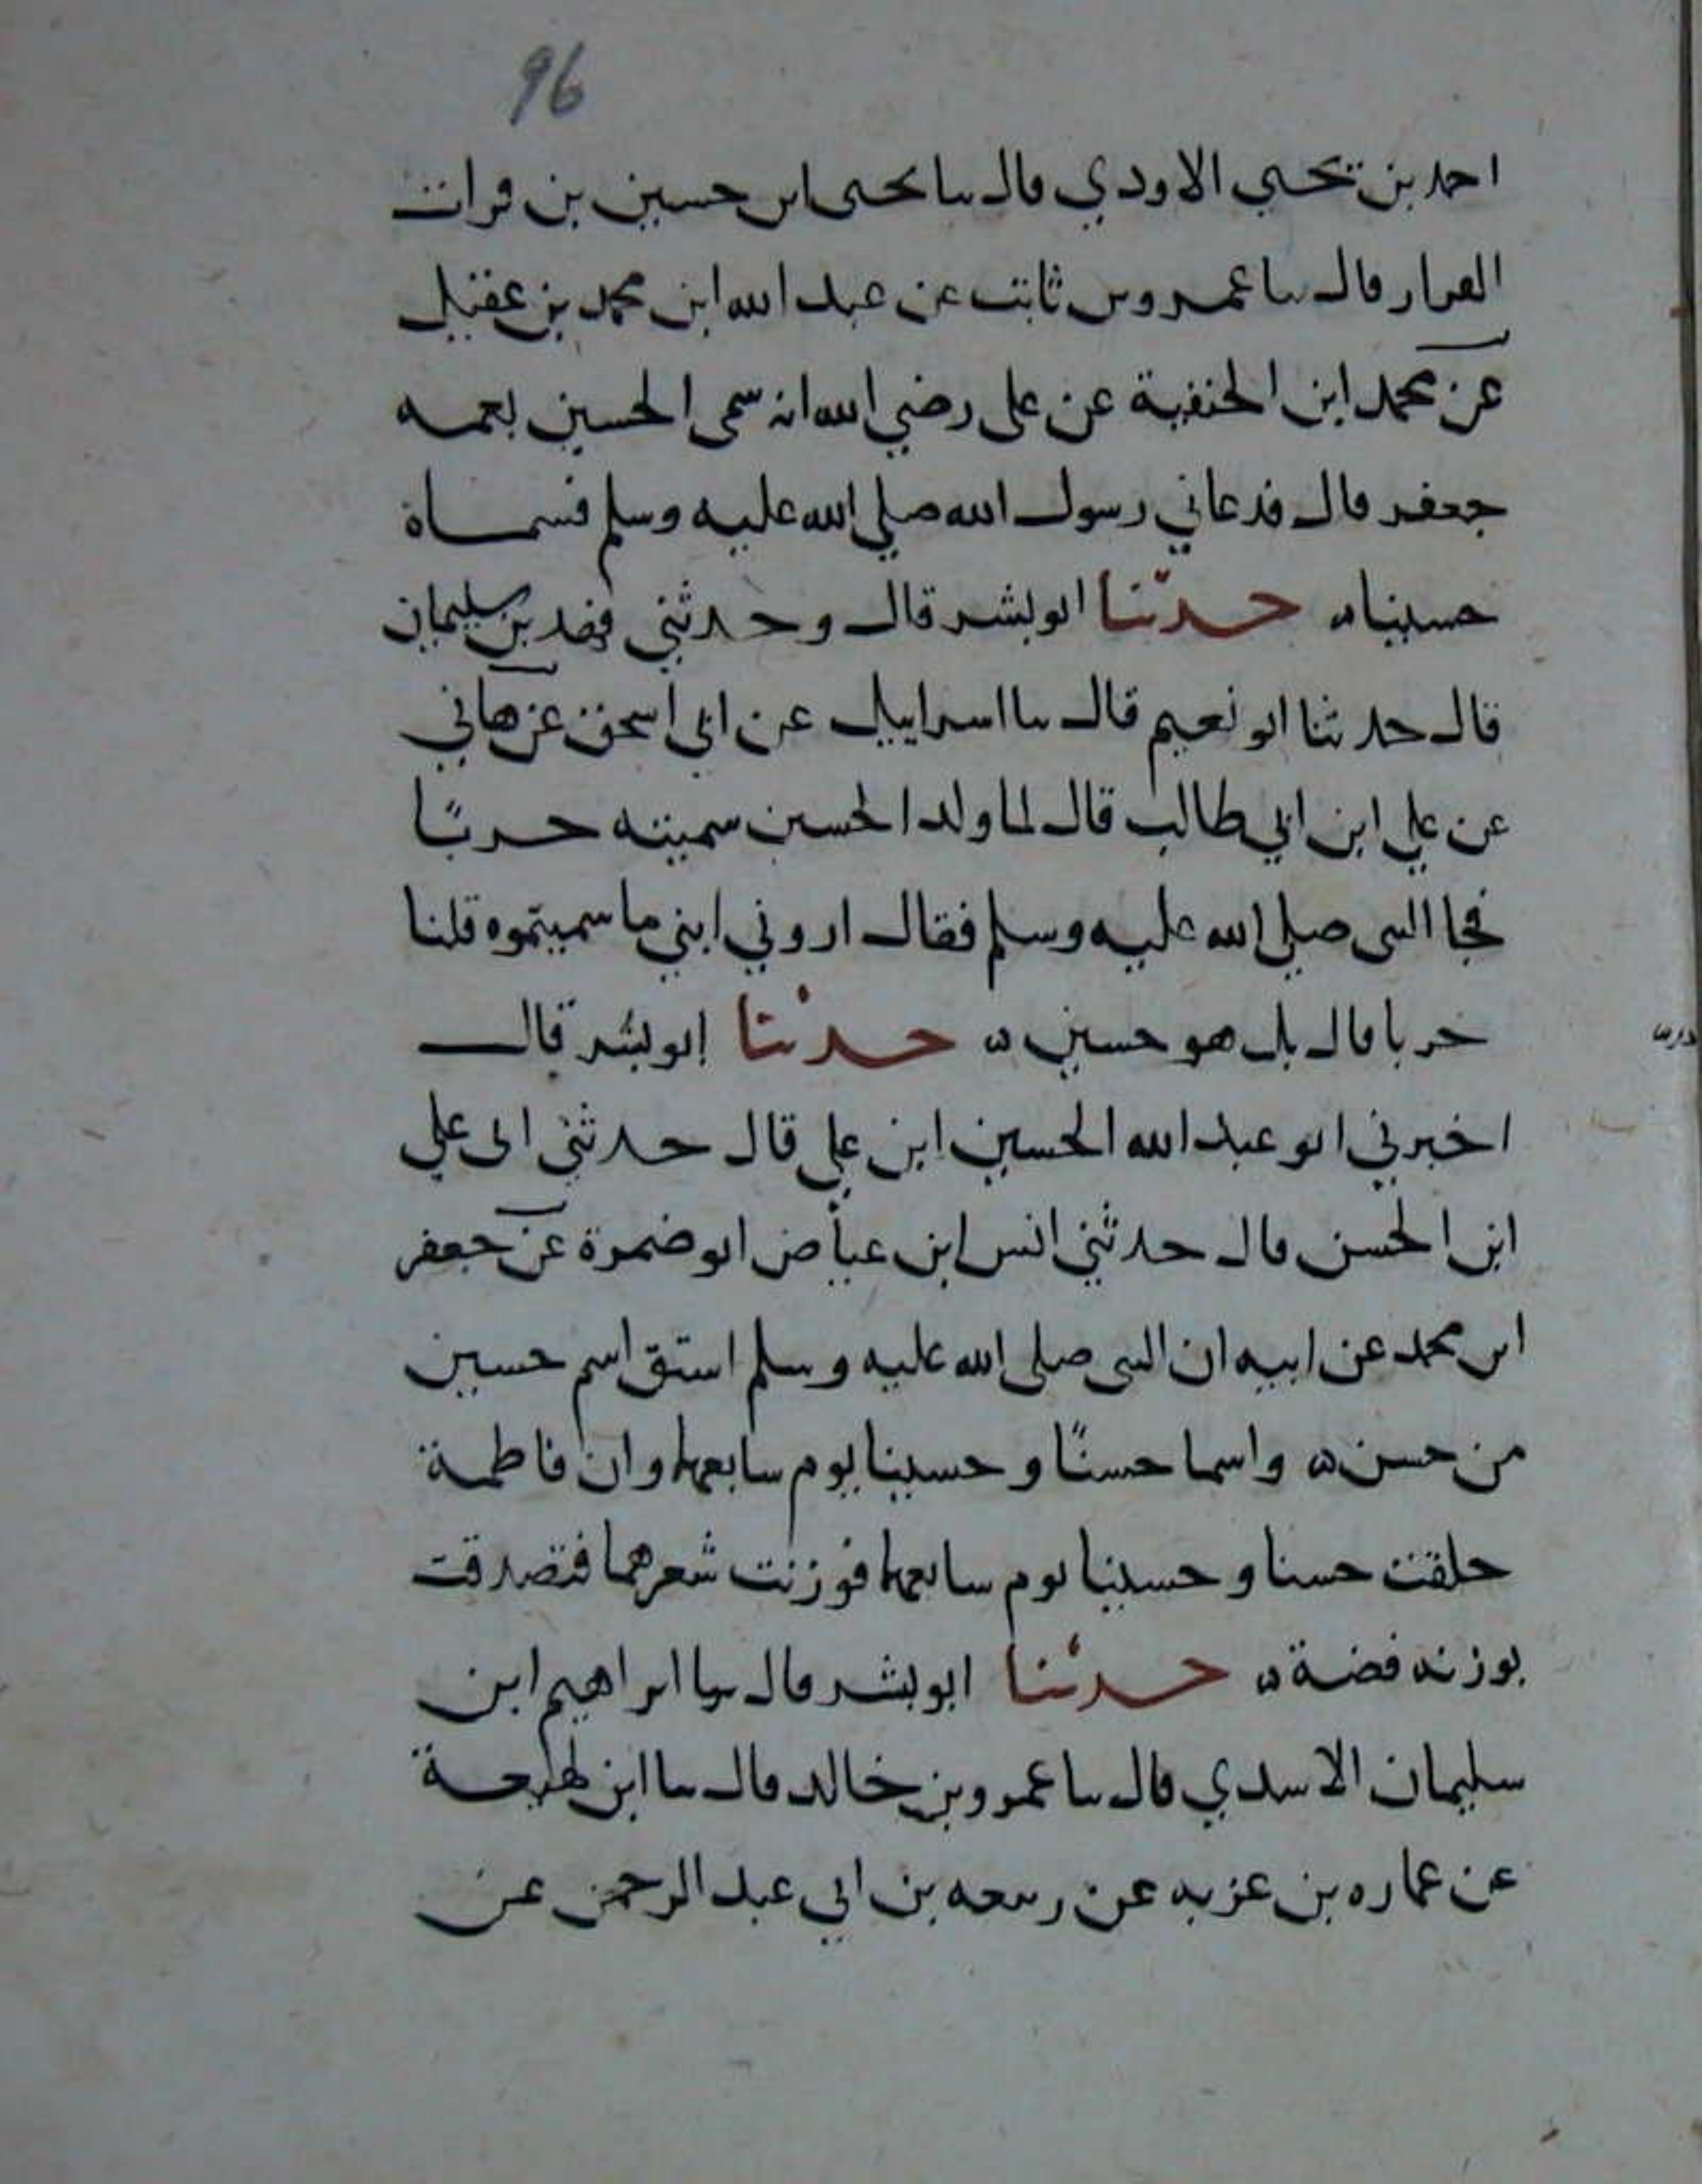 96
احمد بن يحيى الاودي قال ثنا يحيى ابن حسين بن فرات
القرار قال ثنا عمرو بن ثابت عن عبد الله ابن محمد بن عقيل
عن محمد ابن الحنفية عن على رضي الله انه سمى الحسين بعمه
جعفر قال فدعاني رسول الله صلي الله عليه وسلم فسماة
حسينا ه حدثنا ابو بشر قال وحدثني فهد بن سليمان
قال حدثنا ابو نعيم قال ثنا اسراييل عن ابي اسحق عن هاني
عن علي ابن ابي طالب قال لما ولد الحسين سميته حربًا
فجا النبي صلي الله عليه وسلم فقال اروني ابني ما سميتموه قلنا
حربا قال بل هو حسين ه حدثنا ابو بشر قال
اخبرني ابو عبد الله الحسين ابن علي قال حدثني ابى علي
ابن الحسن قال حدثني انس ابن عياض ابو ضمرة عن جعفر
ابن محمد عن ابيه ان النبى صلى الله عليه وسلم اشتق اسم حسين
من حسن ه واسما حسنًا وحسينا يوم سابعهما وان فاطمة
حلقت حسنا وحسينا يوم سابعهما فوزنت شعرهما فتصدقت
بوزنه فضة ه حدثنا ابو بشر قال ثنا ابراهيم ابن
سليمان الاسدي قال ثنا عمرو بن خالد قال ثنا ابن لهيعة
عن عماره بن غزيه عن ربيعه بن ابي عبد الرحمن عن